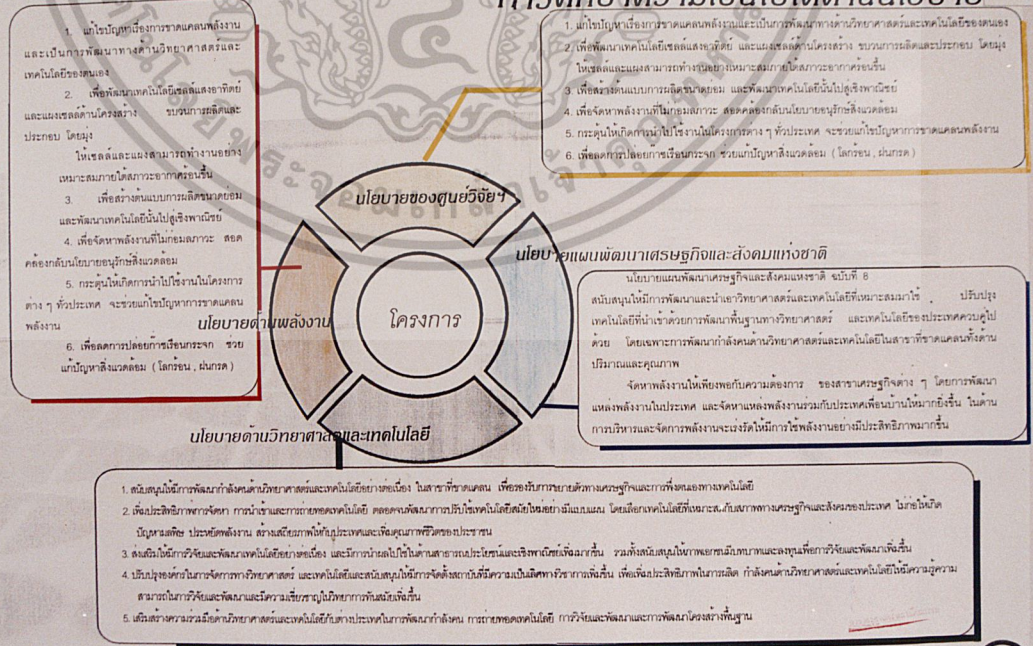 การวิเคราะห์ความเป็นไปได้ด้านนโยบาย
1. แก้ไขปัญหาเรื่องการขาดแคลนพลังงาน
และเป็นการพัฒนาทางด้านวิทยาศาสตร์และ
เทคโนโลยีของตนเอง
2. เพื่อพัฒนาเทคโนโลยีเซลล์แสงอาทิตย์
และแผงเซลล์ด้านโครงสร้าง ขบวนการผลิตและ
ประกอบ โดยมุ่ง
ให้เซลล์และแผงสามารถทำงานอย่าง
เหมาะสมภายใต้สภาวะอากาศร้อนชื้น
3. เพื่อสร้างต้นแบบการผลิตขนาดย่อม
และพัฒนาเทคโนโลยีนั้นไปสู่เชิงพาณิชย์
4. เพื่อจัดหาพลังงานที่ไม่ก่อมลภาวะ สอด
คล้องกับนโยบายอนุรักษ์สิ่งแวดล้อม
5. กระตุ้นให้เกิดการนำไปใช้งานในโครงการ
ต่าง ๆ ทั่วประเทศ จะช่วยแก้ไขปัญหาการขาดแคลน
พลังงาน
6. เพื่อลดการปล่อยก๊าซเรือนกระจก ช่วย
แก้ปัญหาสิ่งแวดล้อม ( โลกร้อน , ฝนกรด )
1. แก้ไขปัญหาเรื่องการขาดแคลนพลังงานและเป็นการพัฒนาทางด้านวิทยาศาสตร์และเทคโนโลยีของตนเอง
2. เพื่อพัฒนาเทคโนโลยีเซลล์แสงอาทิตย์ และแผงเซลล์ด้านโครงสร้าง ขบวนการผลิตและประกอบ โดยมุ่ง
ให้เซลล์และแผงสามารถทำงานอย่างเหมาะสมภายใต้สภาวะอากาศร้อนชื้น
3. เพื่อสร้างต้นแบบการผลิตขนาดย่อม และพัฒนาเทคโนโลยีนั้นไปสู่เชิงพาณิชย์
4. เพื่อจัดหาพลังงานที่ไม่ก่อมลภาวะ สอดคล้องกับนโยบายอนุรักษ์สิ่งแวดล้อม
5. กระตุ้นให้เกิดการนำไปใช้งานในโครงการต่าง ๆ ทั่วประเทศ จะช่วยแก้ไขปัญหาการขาดแคลนพลังงาน
6. เพื่อลดการปล่อยก๊าซเรือนกระจก ช่วยแก้ปัญหาสิ่งแวดล้อม ( โลกร้อน , ฝนกรด )
นโยบายของศูนย์วิจัยฯ
นโยบายแผนพัฒนาเศรษฐกิจและสังคมแห่งชาติ
นโยบายด้านพลังงาน
โครงการ
นโยบายแผนพัฒนาเศรษฐกิจและสังคมแห่งชาติ ฉบับที่ 8
สนับสนุนให้มีการพัฒนาและนำเอาวิทยาศาสตร์และเทคโนโลยีที่เหมาะสมมาใช้ ปรับปรุง
เทคโนโลยีที่นำเข้าด้วยการพัฒนาพื้นฐานทางวิทยาศาสตร์ และเทคโนโลยีของประเทศควบคู่ไป
ด้วย โดยเฉพาะการพัฒนากำลังคนด้านวิทยาศาสตร์และเทคโนโลยีในสาขาที่ขาดแคลนทั้งด้าน
ปริมาณและคุณภาพ
จัดหาพลังงานให้เพียงพอกับความต้องการ ของสาขาเศรษฐกิจต่าง ๆ โดยการพัฒนา
แหล่งพลังงานในประเทศ และจัดหาแหล่งพลังงานร่วมกับประเทศเพื่อนบ้านให้มากยิ่งขึ้น ในด้าน
การบริหารและจัดการพลังงานจะเร่งรัดให้มีการใช้พลังงานอย่างมีประสิทธิภาพมากขึ้น
นโยบายด้านวิทยาศาสตร์และเทคโนโลยี
1. สนับสนุนให้มีการพัฒนากำลังคนด้านวิทยาศาสตร์และเทคโนโลยีอย่างต่อเนื่อง ในสาขาที่ขาดแคลน เพื่อรองรับการขยายตัวทางเศรษฐกิจและการพึ่งตนเองทางเทคโนโลยี
2. เพิ่มประสิทธิภาพการจัดหา การนำเข้าและการถ่ายทอดเทคโนโลยี ตลอดจนพัฒนาการปรับใช้เทคโนโลยีสมัยใหม่อย่างมีแบบแผน โดยเลือกเทคโนโลยีที่เหมาะสมกับสภาพทางเศรษฐกิจและสังคมของประเทศ ไม่ก่อให้เกิด
ปัญหามลพิษ ประหยัดพลังงาน สร้างเสถียรภาพให้กับประเทศและเพิ่มคุณภาพชีวิตของประชาชน
3. ส่งเสริมให้มีการวิจัยและพัฒนาเทคโนโลยีอย่างต่อเนื่อง และมีการนำผลไปใช้ในด้านสาธารณประโยชน์และเชิงพาณิชย์เพิ่มมากขึ้น รวมทั้งสนับสนุนให้ภาคเอกชนมีบทบาทและลงทุนเพื่อการวิจัยและพัฒนาเพิ่มขึ้น
4. ปรับปรุงองค์กรในการจัดการทางวิทยาศาสตร์ และเทคโนโลยีและสนับสนุนให้มีการจัดตั้งสถาบันที่มีความเป็นเลิศทางวิชาการเพิ่มขึ้น เพื่อเพิ่มประสิทธิภาพในการผลิต กำลังคนด้านวิทยาศาสตร์และเทคโนโลยีให้มีความรู้ความ
สามารถในการวิจัยและพัฒนาและมีความเชี่ยวชาญในวิทยาการทันสมัยเพิ่มขึ้น
5. เสริมสร้างความร่วมมือด้านวิทยาศาสตร์และเทคโนโลยีกับต่างประเทศในการพัฒนากำลังคน การถ่ายทอดเทคโนโลยี การวิจัยและพัฒนาและการพัฒนาโครงสร้างพื้นฐาน